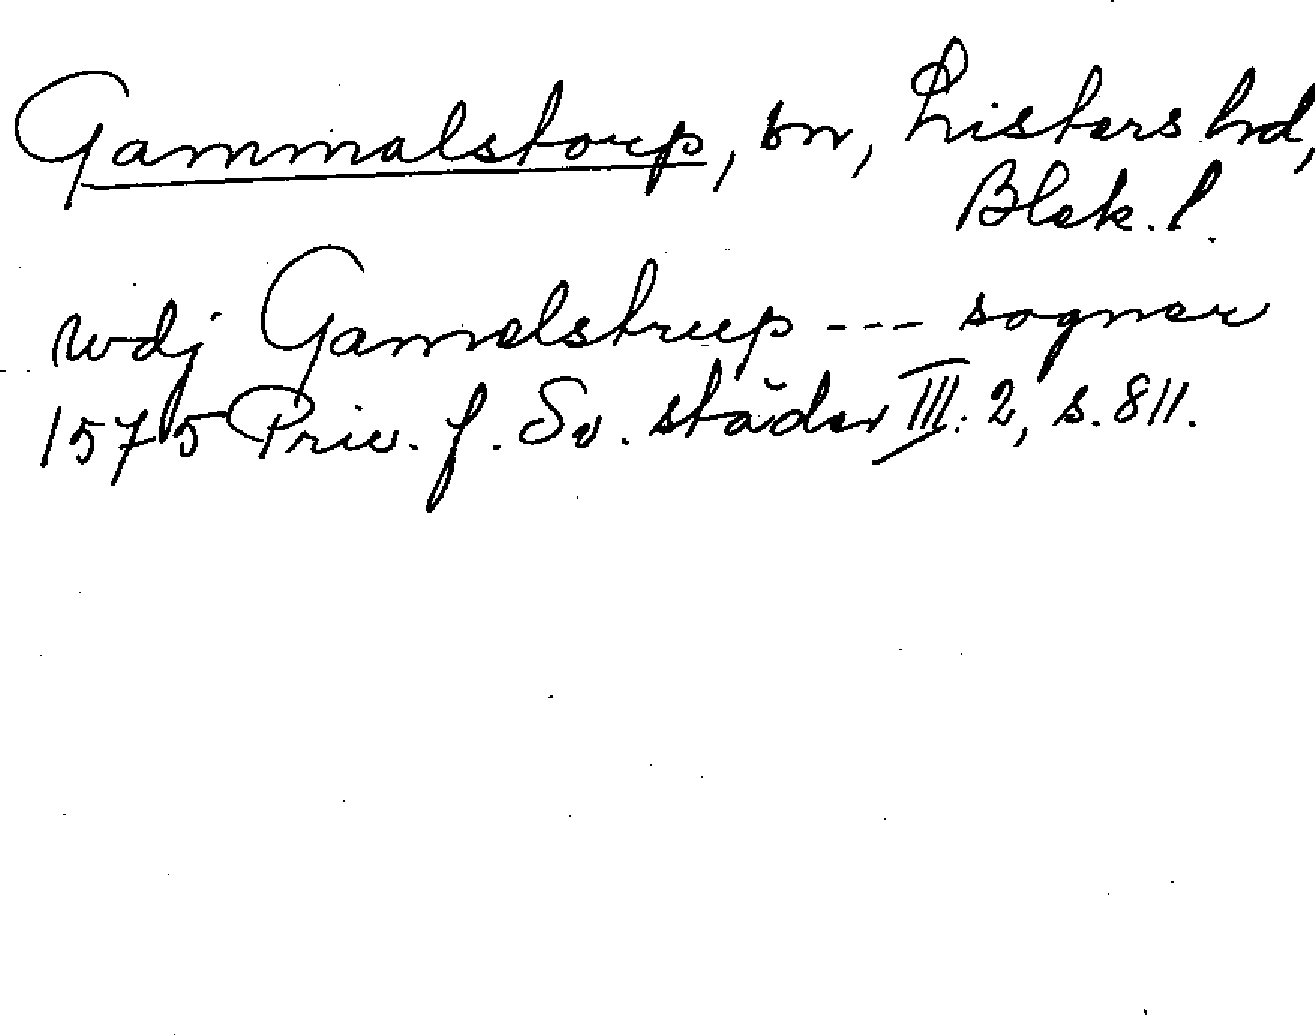 Gammalstorp, sn, Listers hd,
Blek. l.
wdj Gamelstrup --- sogner
1575 Priv. f. Sv. städer III: 2, s. 811.